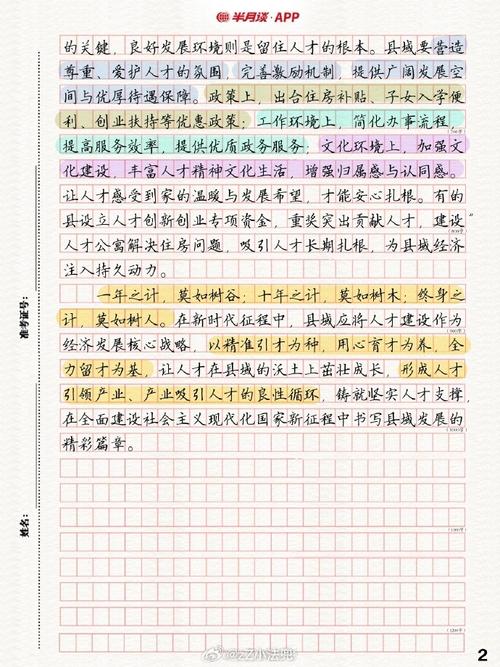 半月谈·APP
的关键，良好发展环境则是留住人才的根本。县域要营造
尊重、爱护人才的氛围，完善激励机制，提供广阔发展空
间与优厚待遇保障。政策上，出台住房补贴、子女入学便
利、创业扶持等优惠政策；工作环境上，简化办事流程，
提高服务效率，提供优质政务服务；文化环境上，加强文
化建设，丰富人才精神文化生活，增强归属感与认同感。
让人才感受到家的温暖与发展希望，才能安心扎根。有的
县设立人才创新创业专项资金，重奖突出贡献人才，建设
人才公寓解决住房问题，吸引人才长期扎根，为县域经济
注入持久动力。
一年之计，莫如树谷；十年之计，莫如树木；终身之
计，莫如树人。在新时代征程中，县域应将人才建设作为
经济发展核心战略，以精准引才为种，用心育才为养，全
力留才为基，让人才在县域的沃土上茁壮成长，形成人才
引领产业、产业吸引人才的良性循环，铸就坚实人才支撑，
在全面建设社会主义现代化国家新征程中书写县域发展的
精彩篇章。
准考证号：
姓名：
@zZ小法兜
2